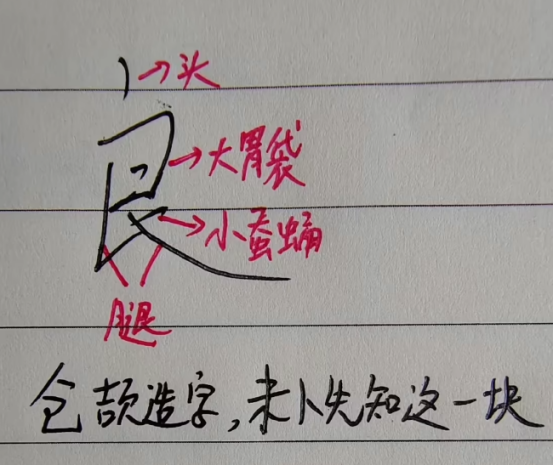 头
良
大胃袋
小蚕蛹
腿
仓颉造字,未卜先知这一块